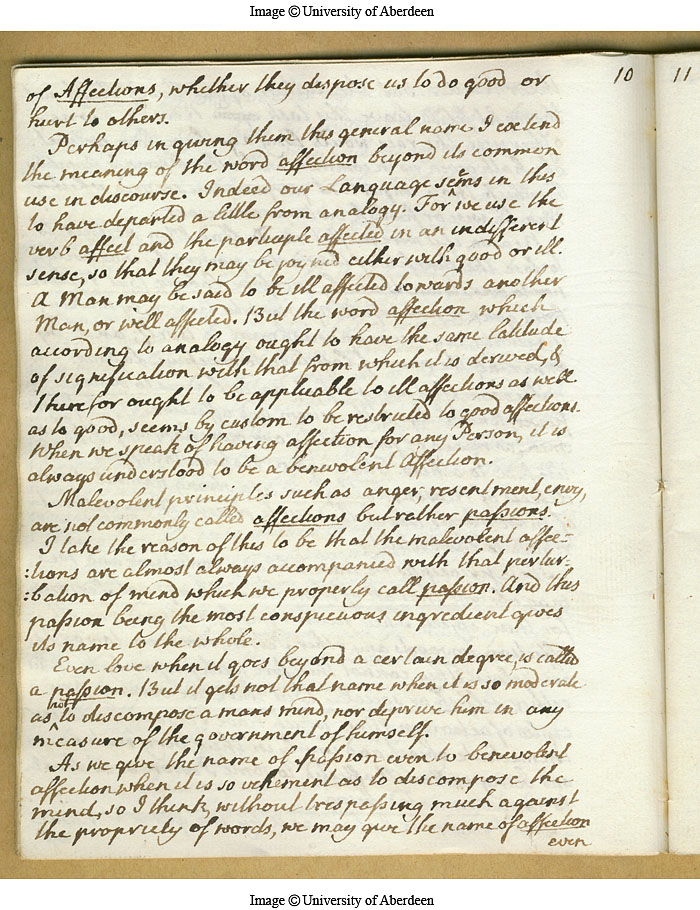 Image © University of Aberdeen
10
11
of Affections, whether they dispose us to do good or
hurt to others.
Perhaps in giving them this general name I extend
the meaning of the word affection beyond its common
use in discourse. Indeed our Language seems in this
to have departed a little from analogy. For we use the
verb affect and the participle affected in an indifferent
sense, so that they may be joyned either with good or ill.
A Man may be said to be ill affected towards another
Man, or well affected. But the word affection which
according to analogy ought to have the same latitude
of signification with that from which it is derived, &
therefor ought to be applicable to ill affections as well
as to good, seems by custom to be restricted to good affections.
When we speak of having affection for any Person, it is
always understood to be a benevolent Affection.
Malevolent principles such as anger, resentment, envy,
are not commonly called affections but rather passions.
I take the reason of this to be that the malevolent affec-
:tions are almost always accompanied with that pertur-
:bation of mind which we properly call passion. And this
passion being the most conspicuous ingredient gives
its name to the whole.
Even love when it goes beyond a certain degree, is called
a passion. But it gets not that name when it is so moderate
as not to discompose a mans mind, nor deprive him in any
measure of the government of himself.
As we give the name of passion even to benevolent
affection when it is so vehement as to discompose the
mind, so I think, without trespassing much against
the propriety of words, we may give the name of affection
even
Image © University of Aberdeen